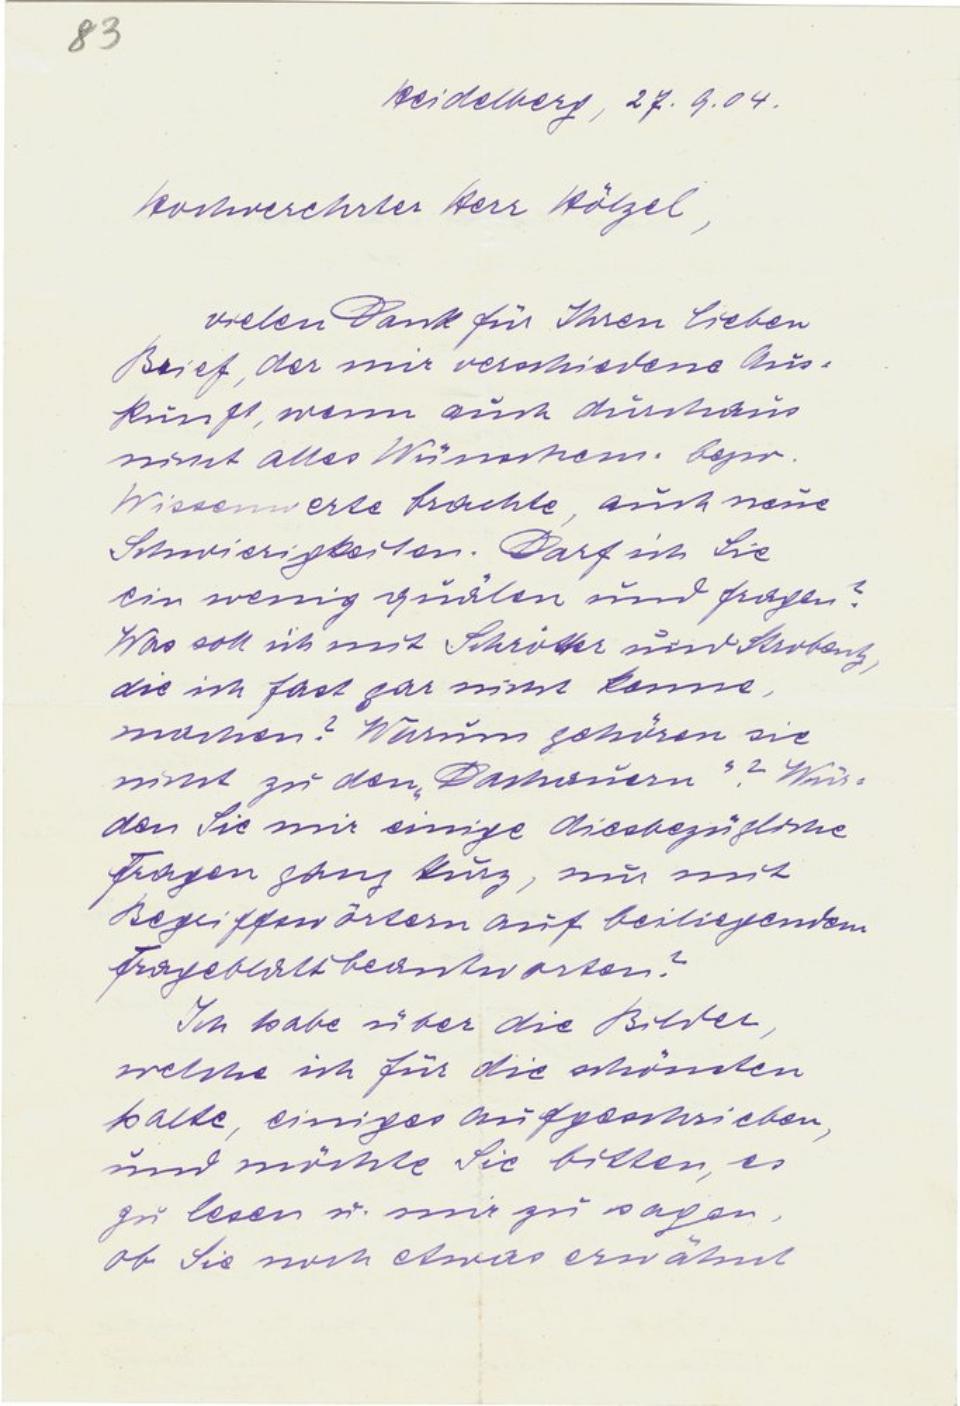 83
Heidelberg, 27. 9. 04.
Hochverehrter Herr Hölzel,
vielen Dank für Ihren lieben
Brief, der mir verschiedene Aus-
kunft, wenn auch durchaus
nicht alles Wünschen- bezw.
Wissenswerte brachte, auch neue
Schwierigkeiten. Darf ich Sie
ein wenig quälen und fragen?
Was soll ich mit Schrötter und Strobentz,
die ich fast gar nicht kenne,
machen? Warum gehören sie
nicht zu den „Dachauern"? Wür-
den Sie mir einige diesbezügliche
Fragen ganz kurz, nur mit
Begriffswörtern auf beiliegendem
Frageblatt beantworten?
Ich habe über die Bilder,
welche ich für die schönsten
halte, einiges aufgeschrieben,
und möchte Sie bitten, es
zu lesen u. mir zu sagen,
ob Sie noch etwas erwähnt